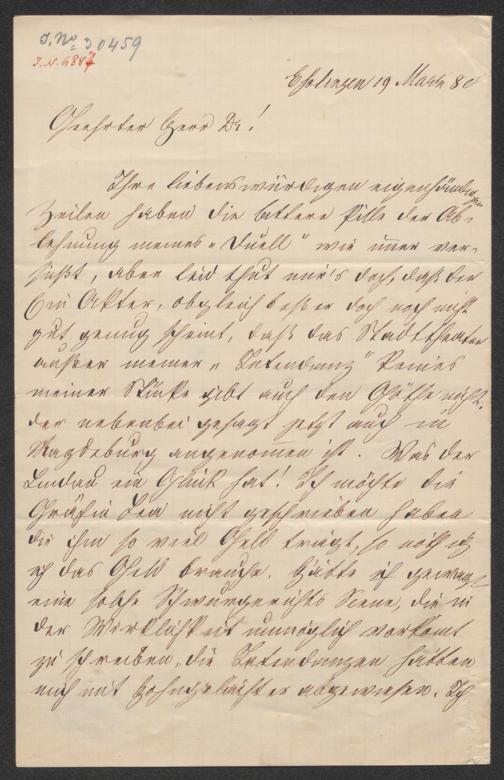 J. No 30459
J. N. 6887
Eßlingen 19 März 80
Geehrter Herr Dr!
Ihre liebenswürdigen eigenhändigen
Zeilen haben die bittere Pille der Ab-
lehnung meines „Duell“ wie immer ver-
süßt, aber leid thut mir's doch, daß der
Ein Akter, obgleich beßer doch noch nicht
gut genug scheint, daß das Stadttheater
außer meiner „ Intendanz“ keines
meiner Stücke gibt auch den Göthe nicht,
der nebenbei gesagt jetzt auch in
Magdeburg angenommen ist. Was der
Lindau ein Glück hat! Ich möchte die
Gräfin Lea nicht geschrieben haben
die ihm so viel Geld trägt, so nöthig
ich das Geld brauche. Hätte ich gewagt
eine solche Schwurgerichts Scene, die in
der Wirklichkeit unmöglich vorkomt
zu schreiben, die Intendanzen hätten
mich mit Hohngelächter abgewiesen. Ich